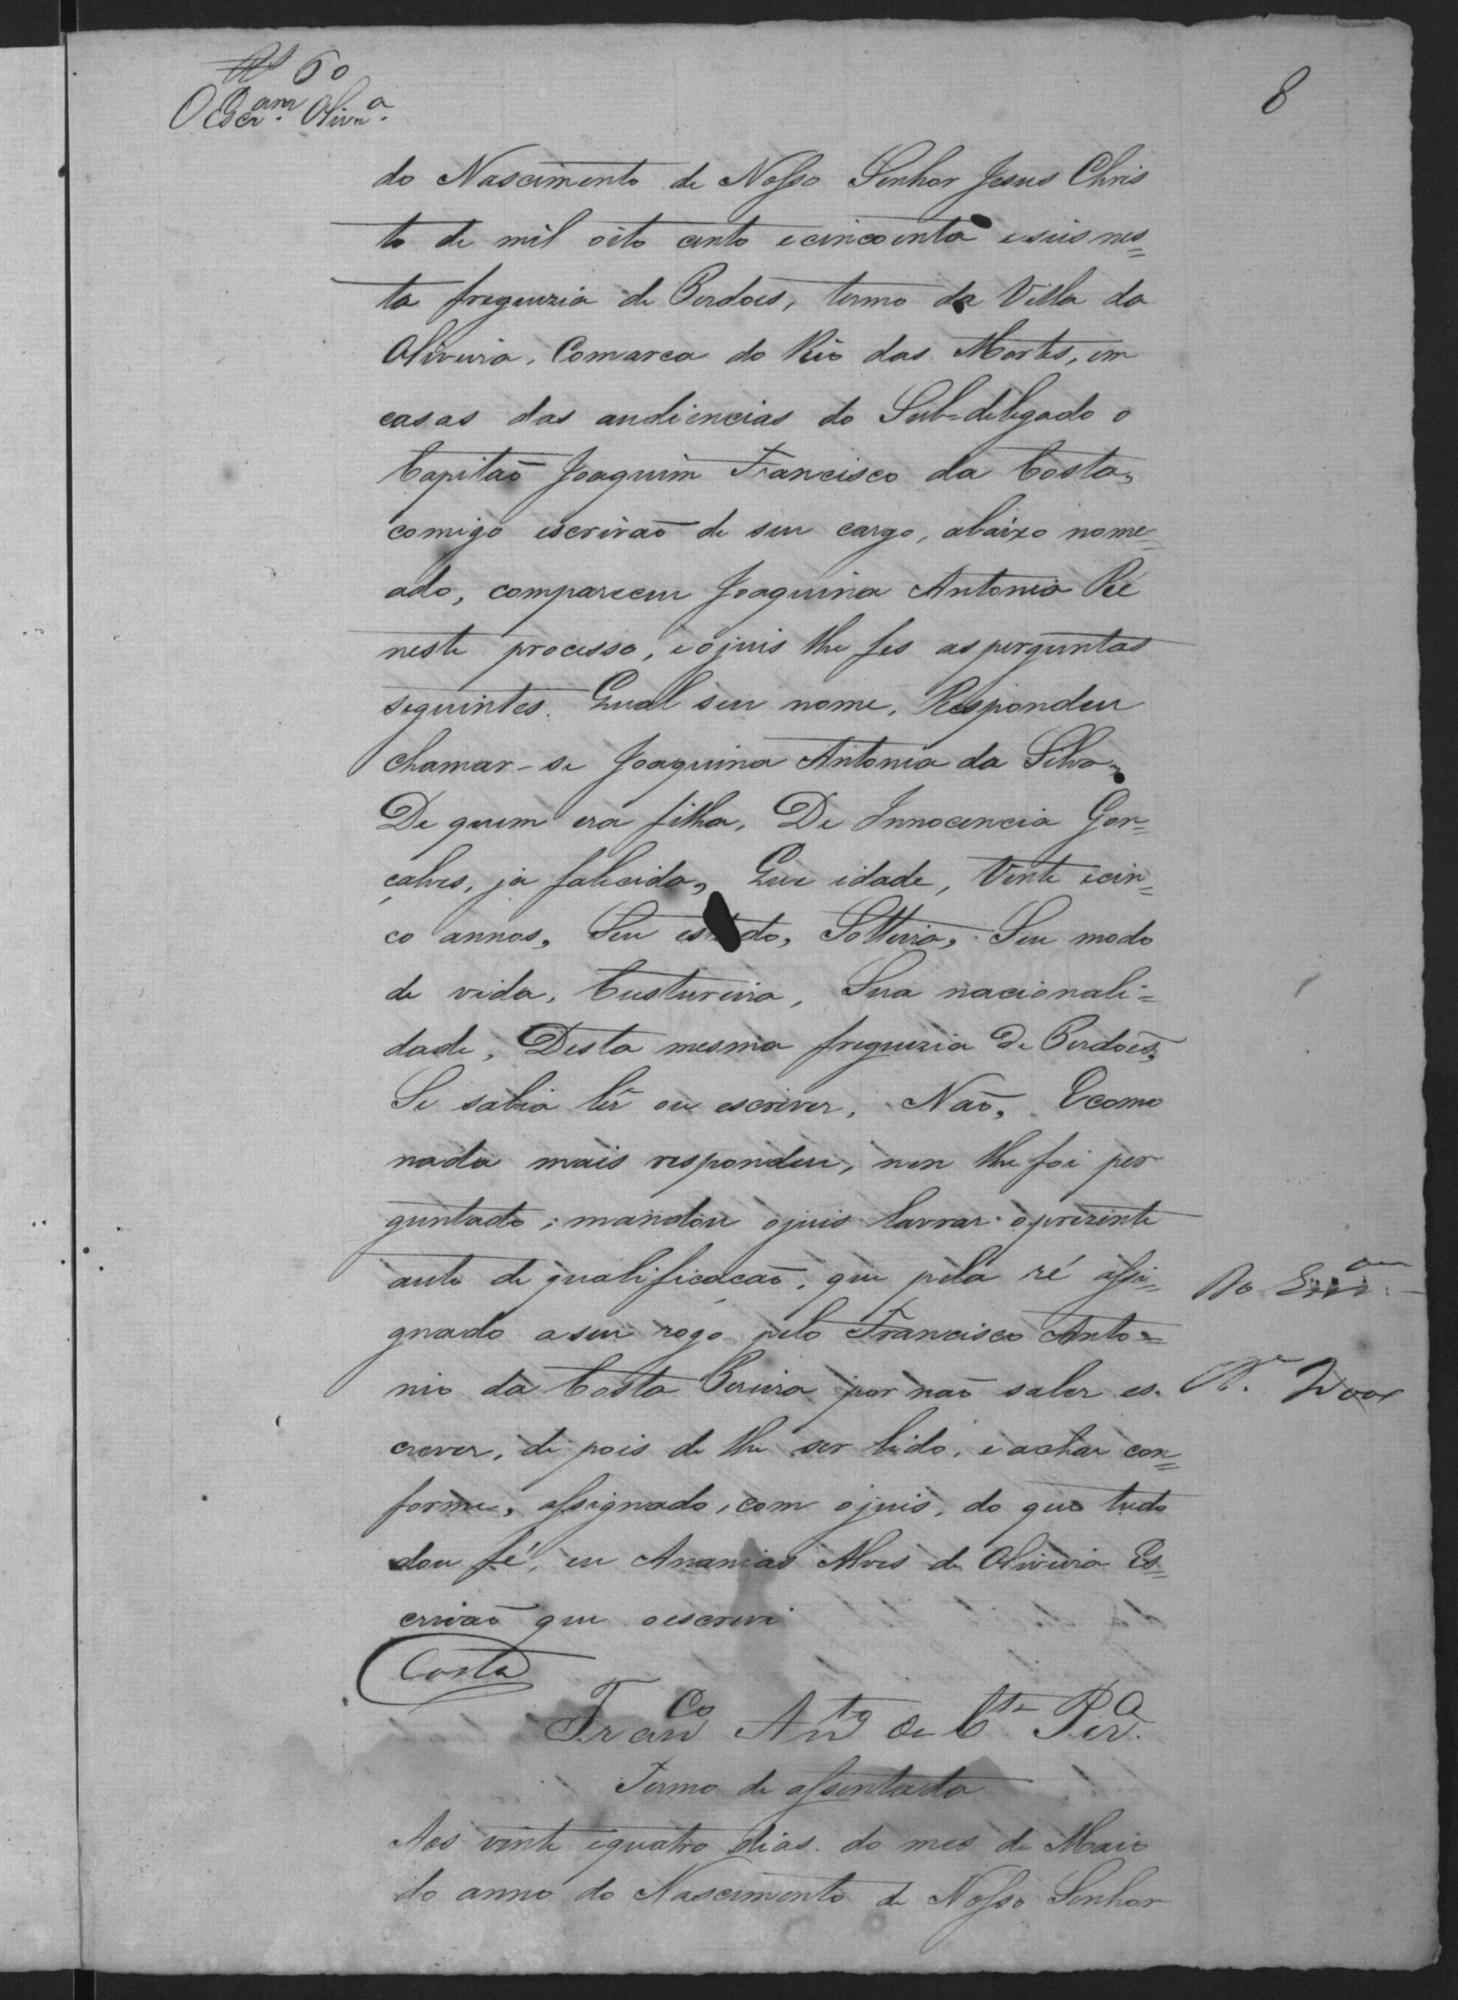 60
O Escram. Olivra.
8
do Nascimento de Nosso Senhor Jesus Chris
to de mil oito cento e cincoenta e seis nes=
ta freguezia de Perdoes, termo da Villa da
Oliveira, Comarca do Rio das Mortes, em
casas das audiencias do Sub=delegado o
Capitaõ Joaquim Francisco da Costa,
comigo escrivaõ de seu cargo, abaixo nome=
ado, compareceu Joaquina Antonia Ré
neste processo, e ojuis lhe fes asperguntas
seguintes. Qual seu nome, Respondeu
chamar-se Joaquina Antonia da Silva,
De quem era filha, De Innocencia Gon=
çalves, ja falicida, Que idade, Vinte ecin=
co annos, Seu estado, Solteira, Seu modo
de vida, Custureira, Sua nacionali=
dade, Desta mesma freguezia de Perdoẽs,
Se sabia lêr ou escriver, Naõ, Ecomo
nada mais respondeu, nen lhe foi per
guntado, mandou ojuis lavrar oprezente
auto de qualificaçaõ, que pela ré assi=
gnado aseu rogo pelo Francisco Anto=
nio da Costa Pereira por naõ saber es-
crever, de pois de lhe ser lido, e achar con=
forme, assignado, com ojuis, do que tudo
dou fé, eu Ananias Alves de Oliveira Es=
crivaõ que oescrevi
Costa
Franco Anto da Cta Pera.
Termo de assentada
Aos vinte equatro dias do mes de Maio
do anno do Nascimento de Nosso Senhor